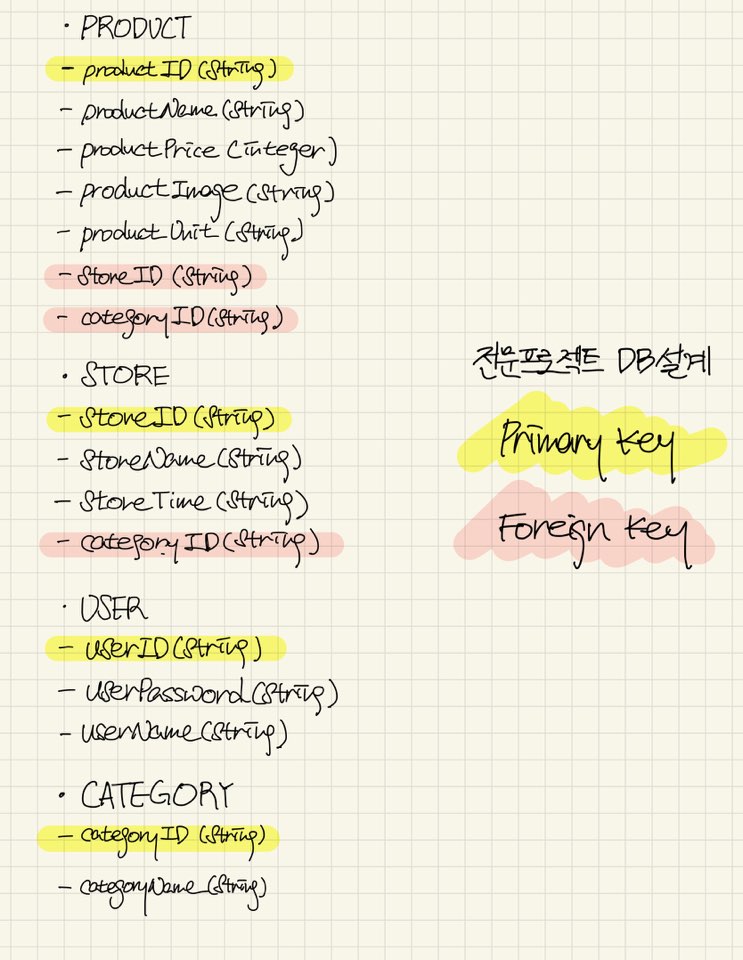 · PRODUCT
- productID (String)
- productName (String)
- productPrice (integer)
- productImage (String)
- productUnit (String)
- StoreID (String)
- categoryID (String)
· STORE
- StoreID (String)
- StoreName (String)
- StoreTime (String)
- categoryID (String)
· USER
- userID (String)
- userPassword (String)
- userName (String)
· CATEGORY
- categoryID (String)
- categoryName (String)
전문프로젝트 DB설계
Primary key
Foreign key